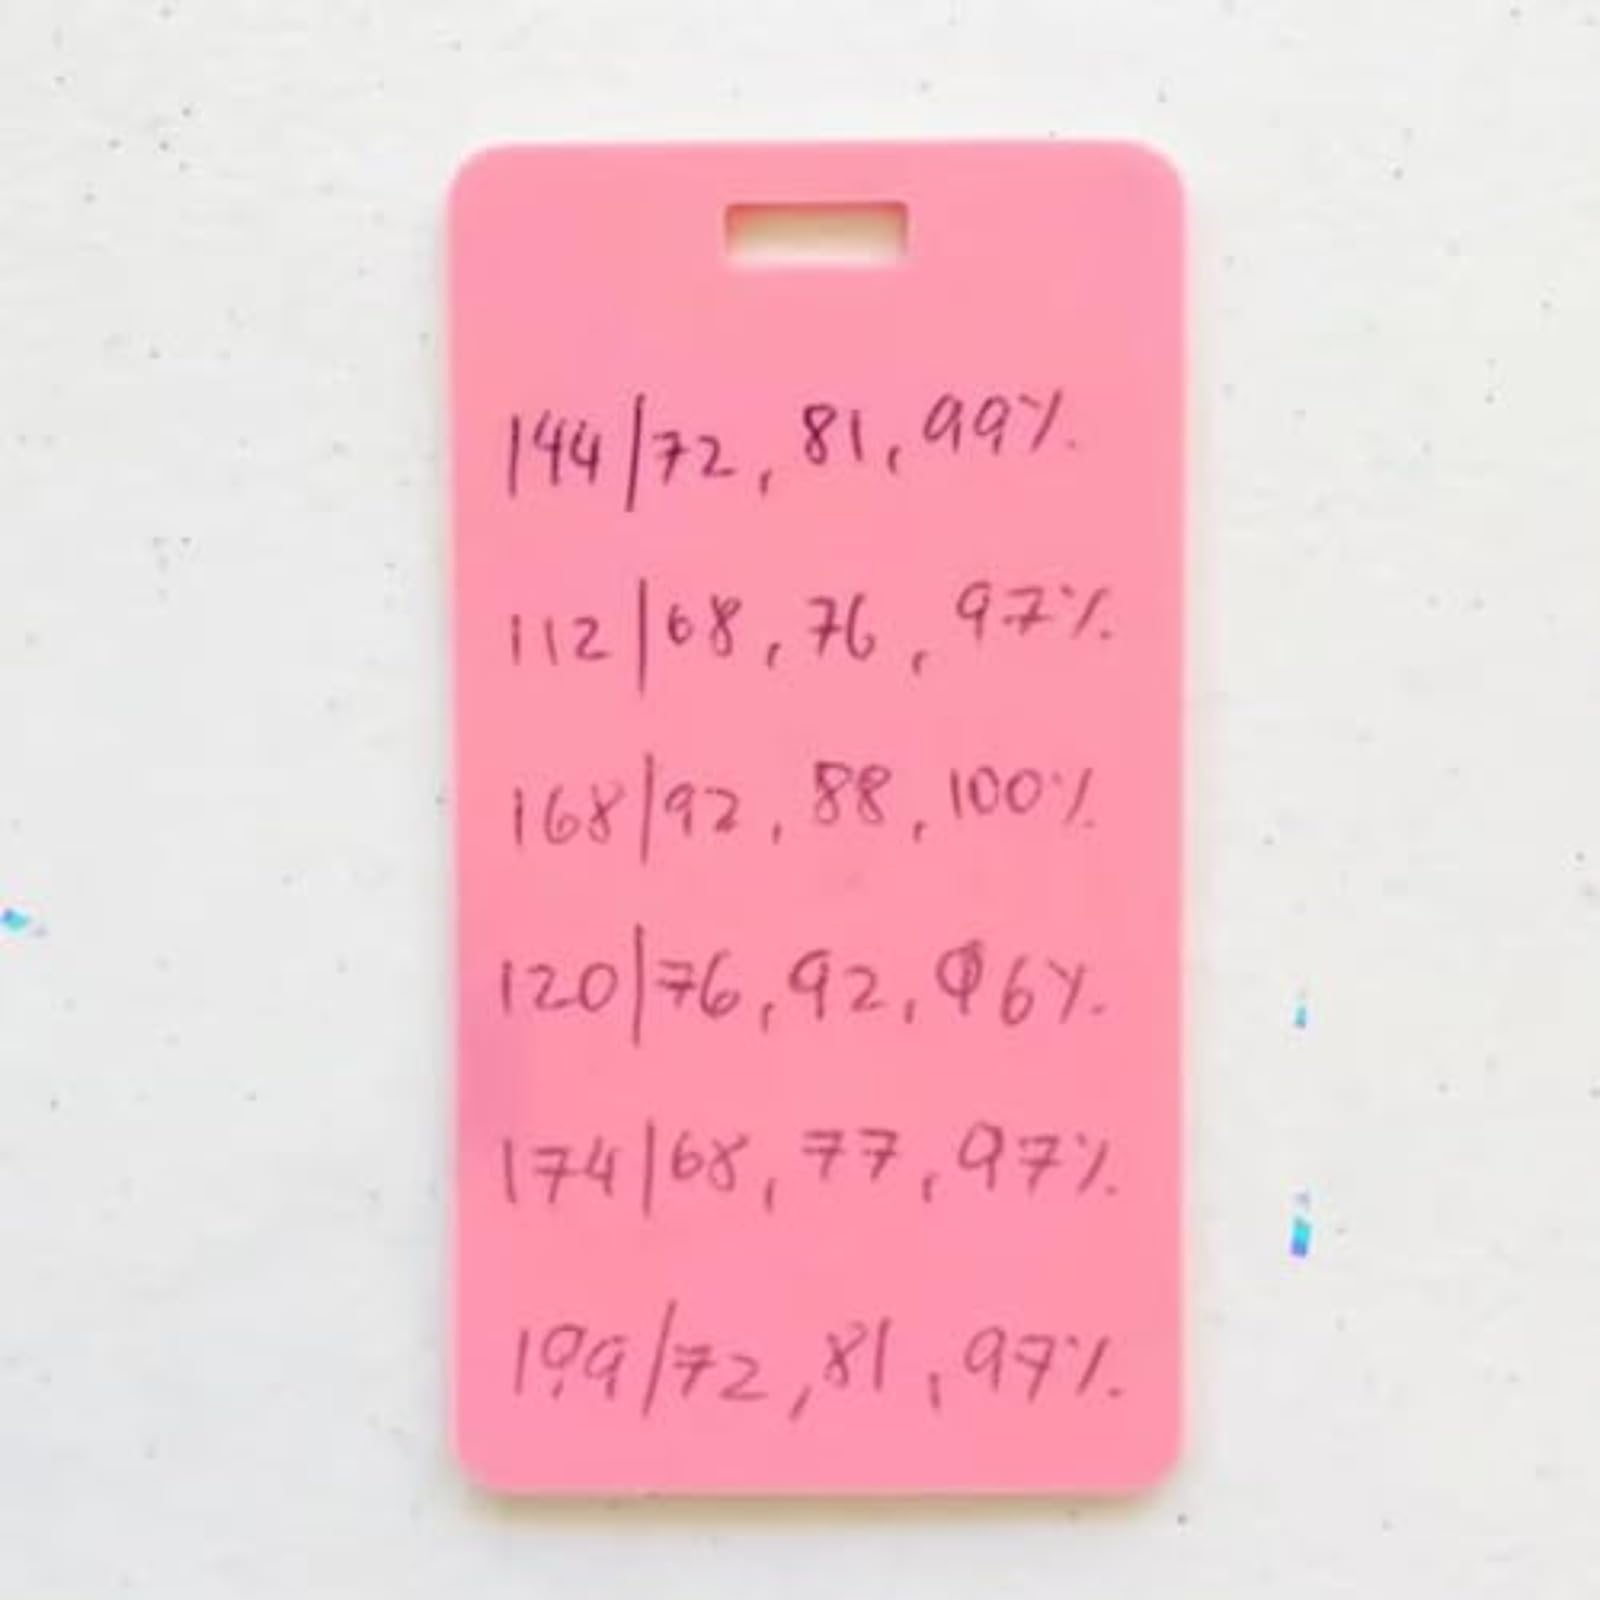 144/72, 81, 99%
112/68, 76, 97%
168/92, 88, 100%
120/76, 92, 96%
174/68, 77, 97%
199/72, 81, 97%